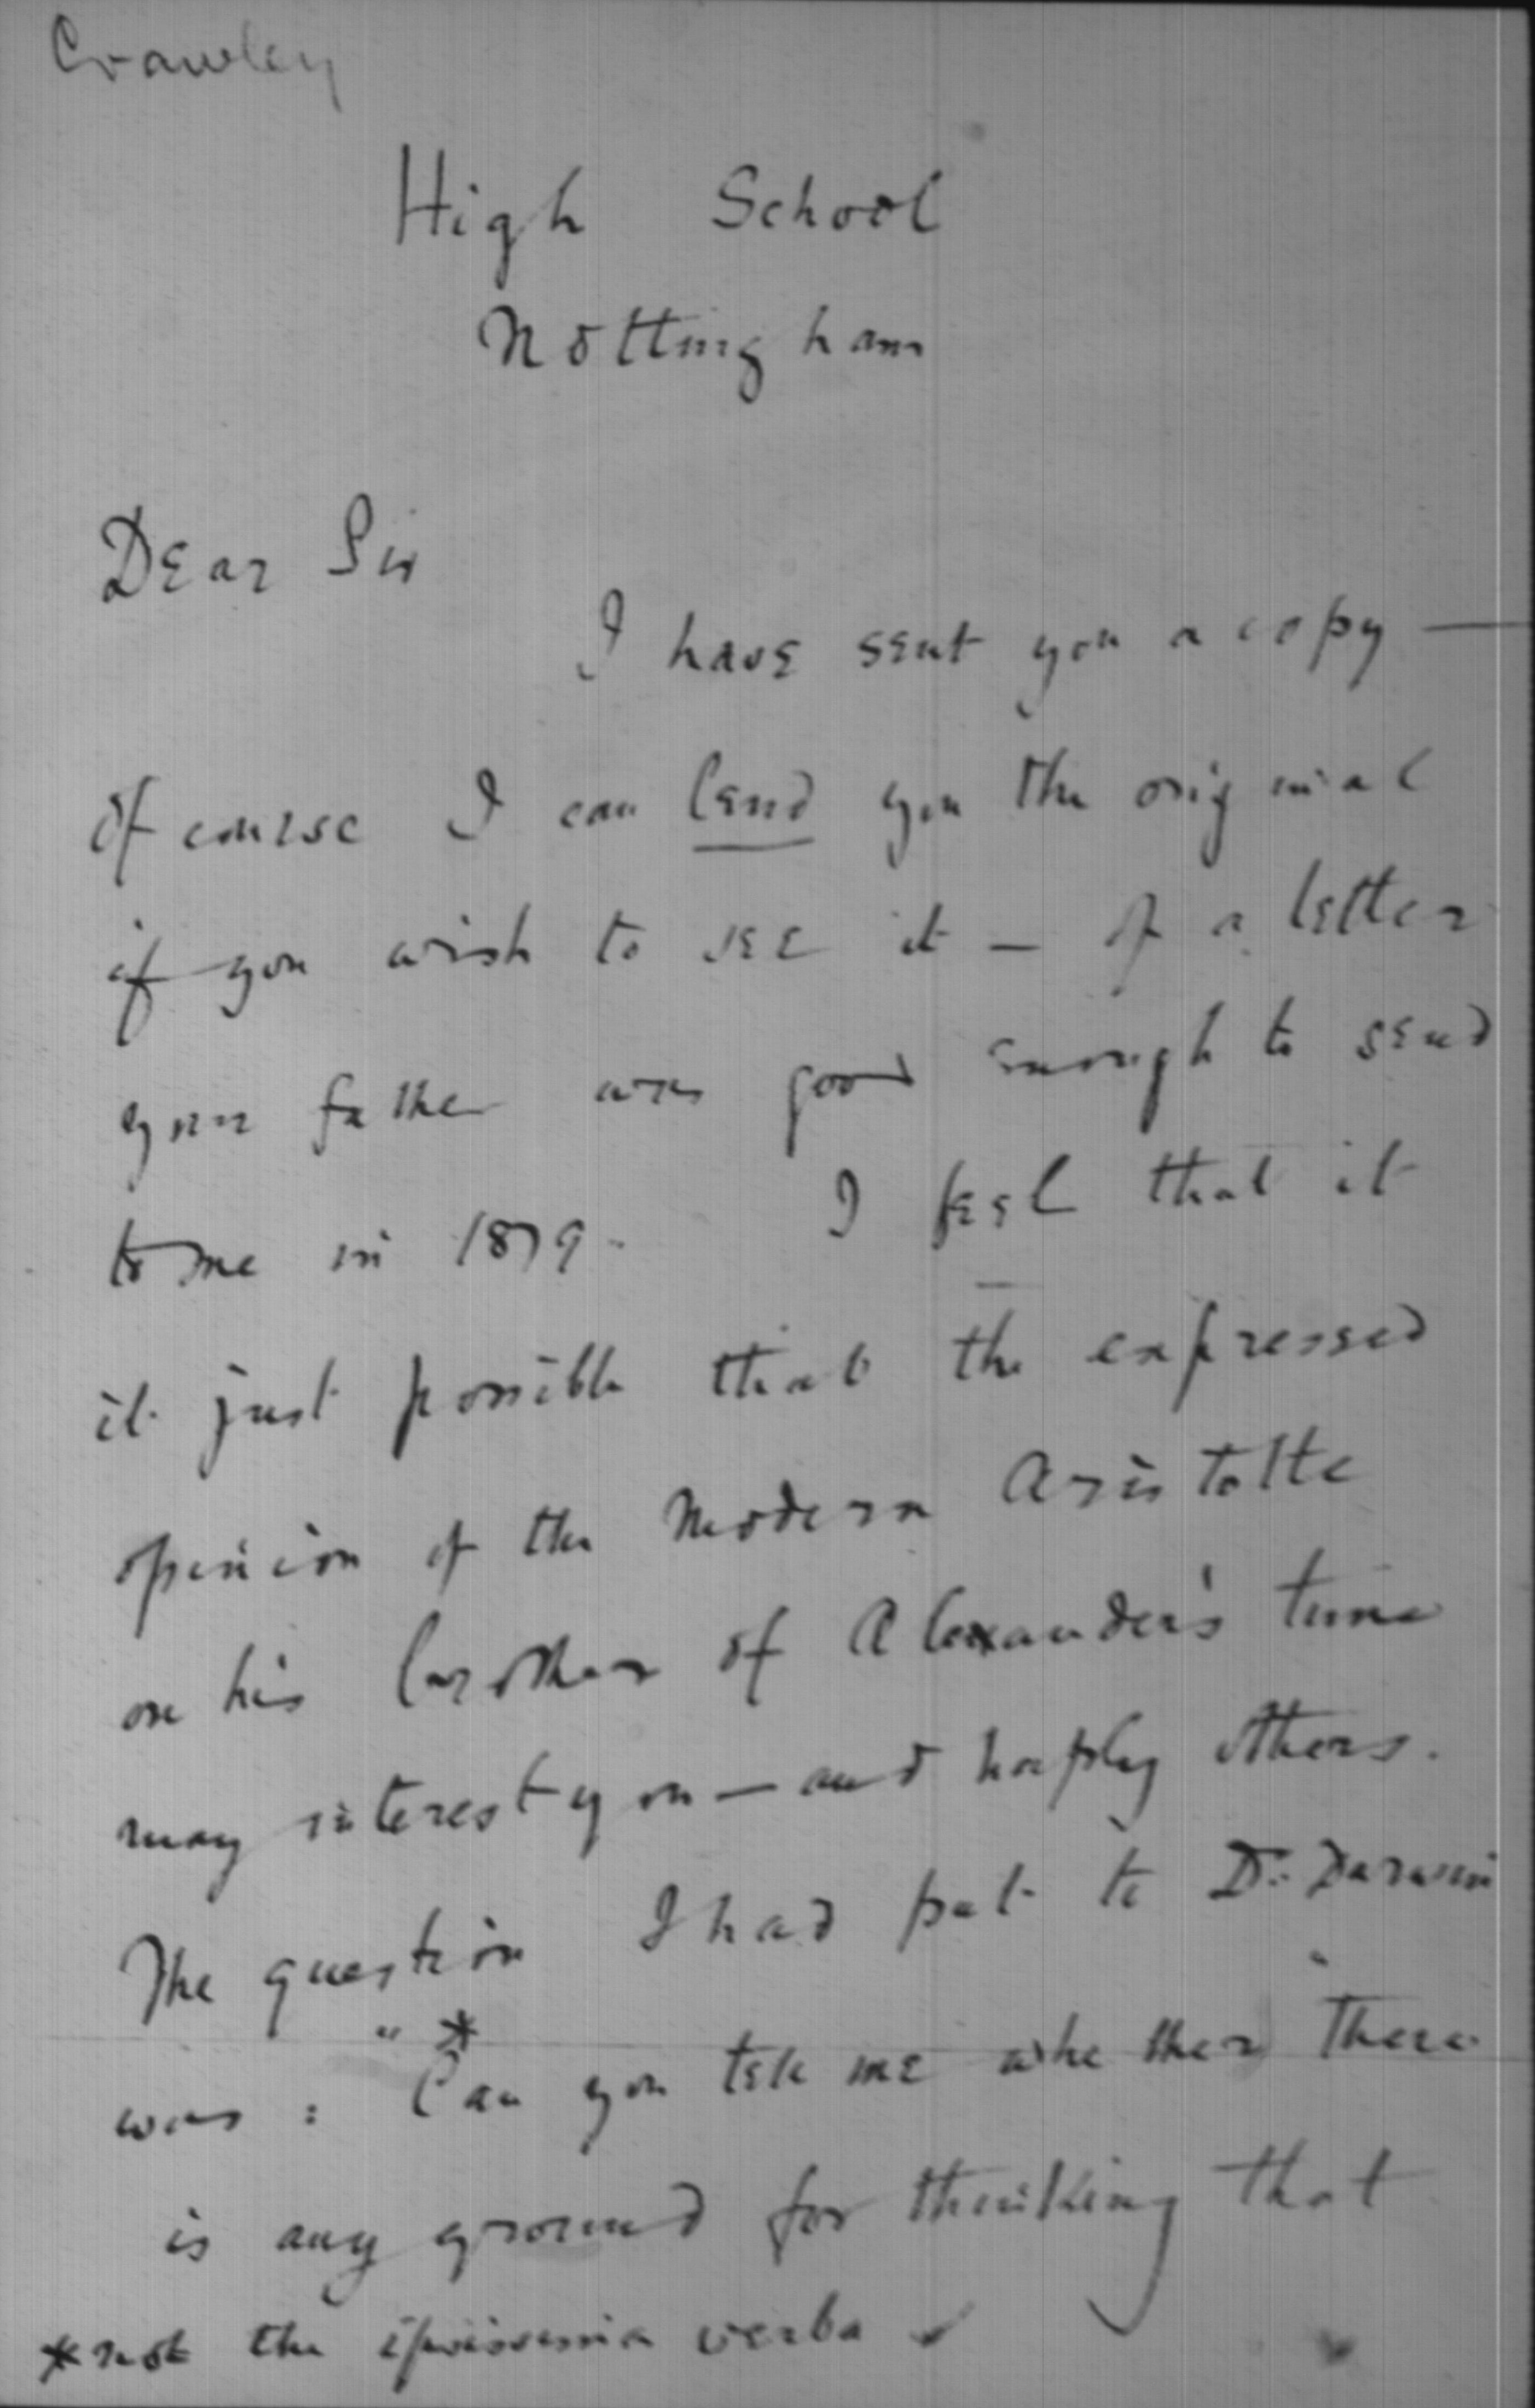 Crawley
High School
Nottingham
Dear Sir
I have sent you a copy —
of course I can lend you the original
if you wish to see it — of a letter
your father was good enough to send
to me in 1879. I feel that it
it just possible that the expressed
opinion of the modern Aristotle
on his brother of Alexander's time
may interest you — and haply others.
The question I had put to Dr. Darwin
was : "* Can you tell me whether "there
is any ground for thinking that
* not the ipsissima verba